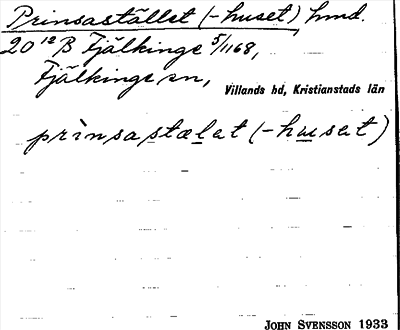 Prinsastället (-huset), hmd.
20 12 B Fjälkinge 5/1168,
Fjälkinge sn,
Villands hd, Kristianstads län
prinsastælet (-husət)
JOHN SVENSSON 1933